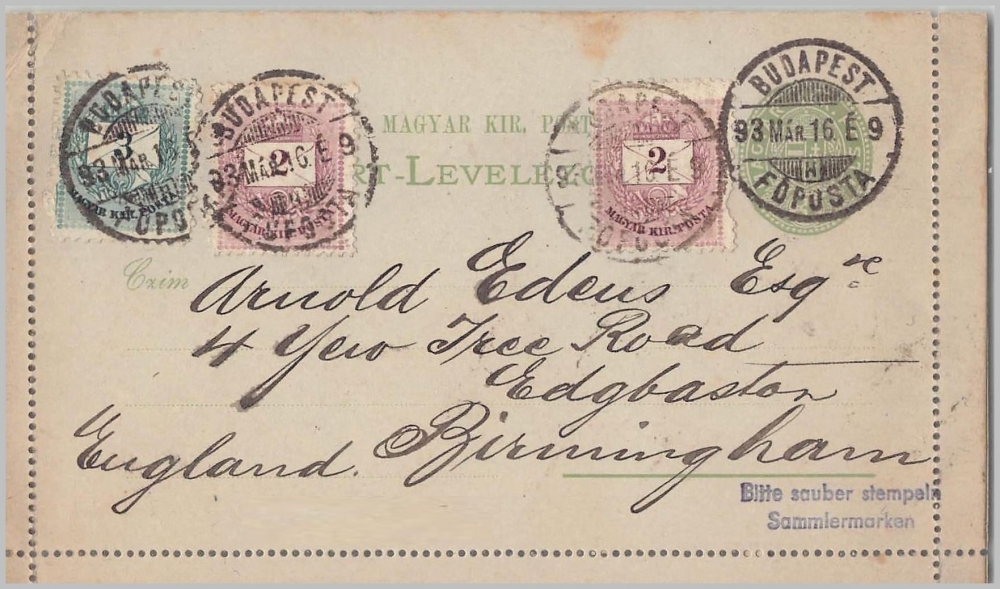 BUDAPEST
93 MÁR
FŐPOSTA
3
MAGYAR KIR. POSTA
BUDAPEST
93 MÁR 16 É 9
FŐPOSTA
2
MAGYAR KIR. POSTA
MAGYAR KIR. POST
RT-LEVELE
2
MAGYAR KIR. POSTA
BUDAPEST
93 MÁR 16 É 9
FŐPOSTA
Czim
Arnold Edens Esqre
4 Yew Tree Road
Edgbaston
England. Birmingham
Bitte sauber stempeln
Sammlermarken